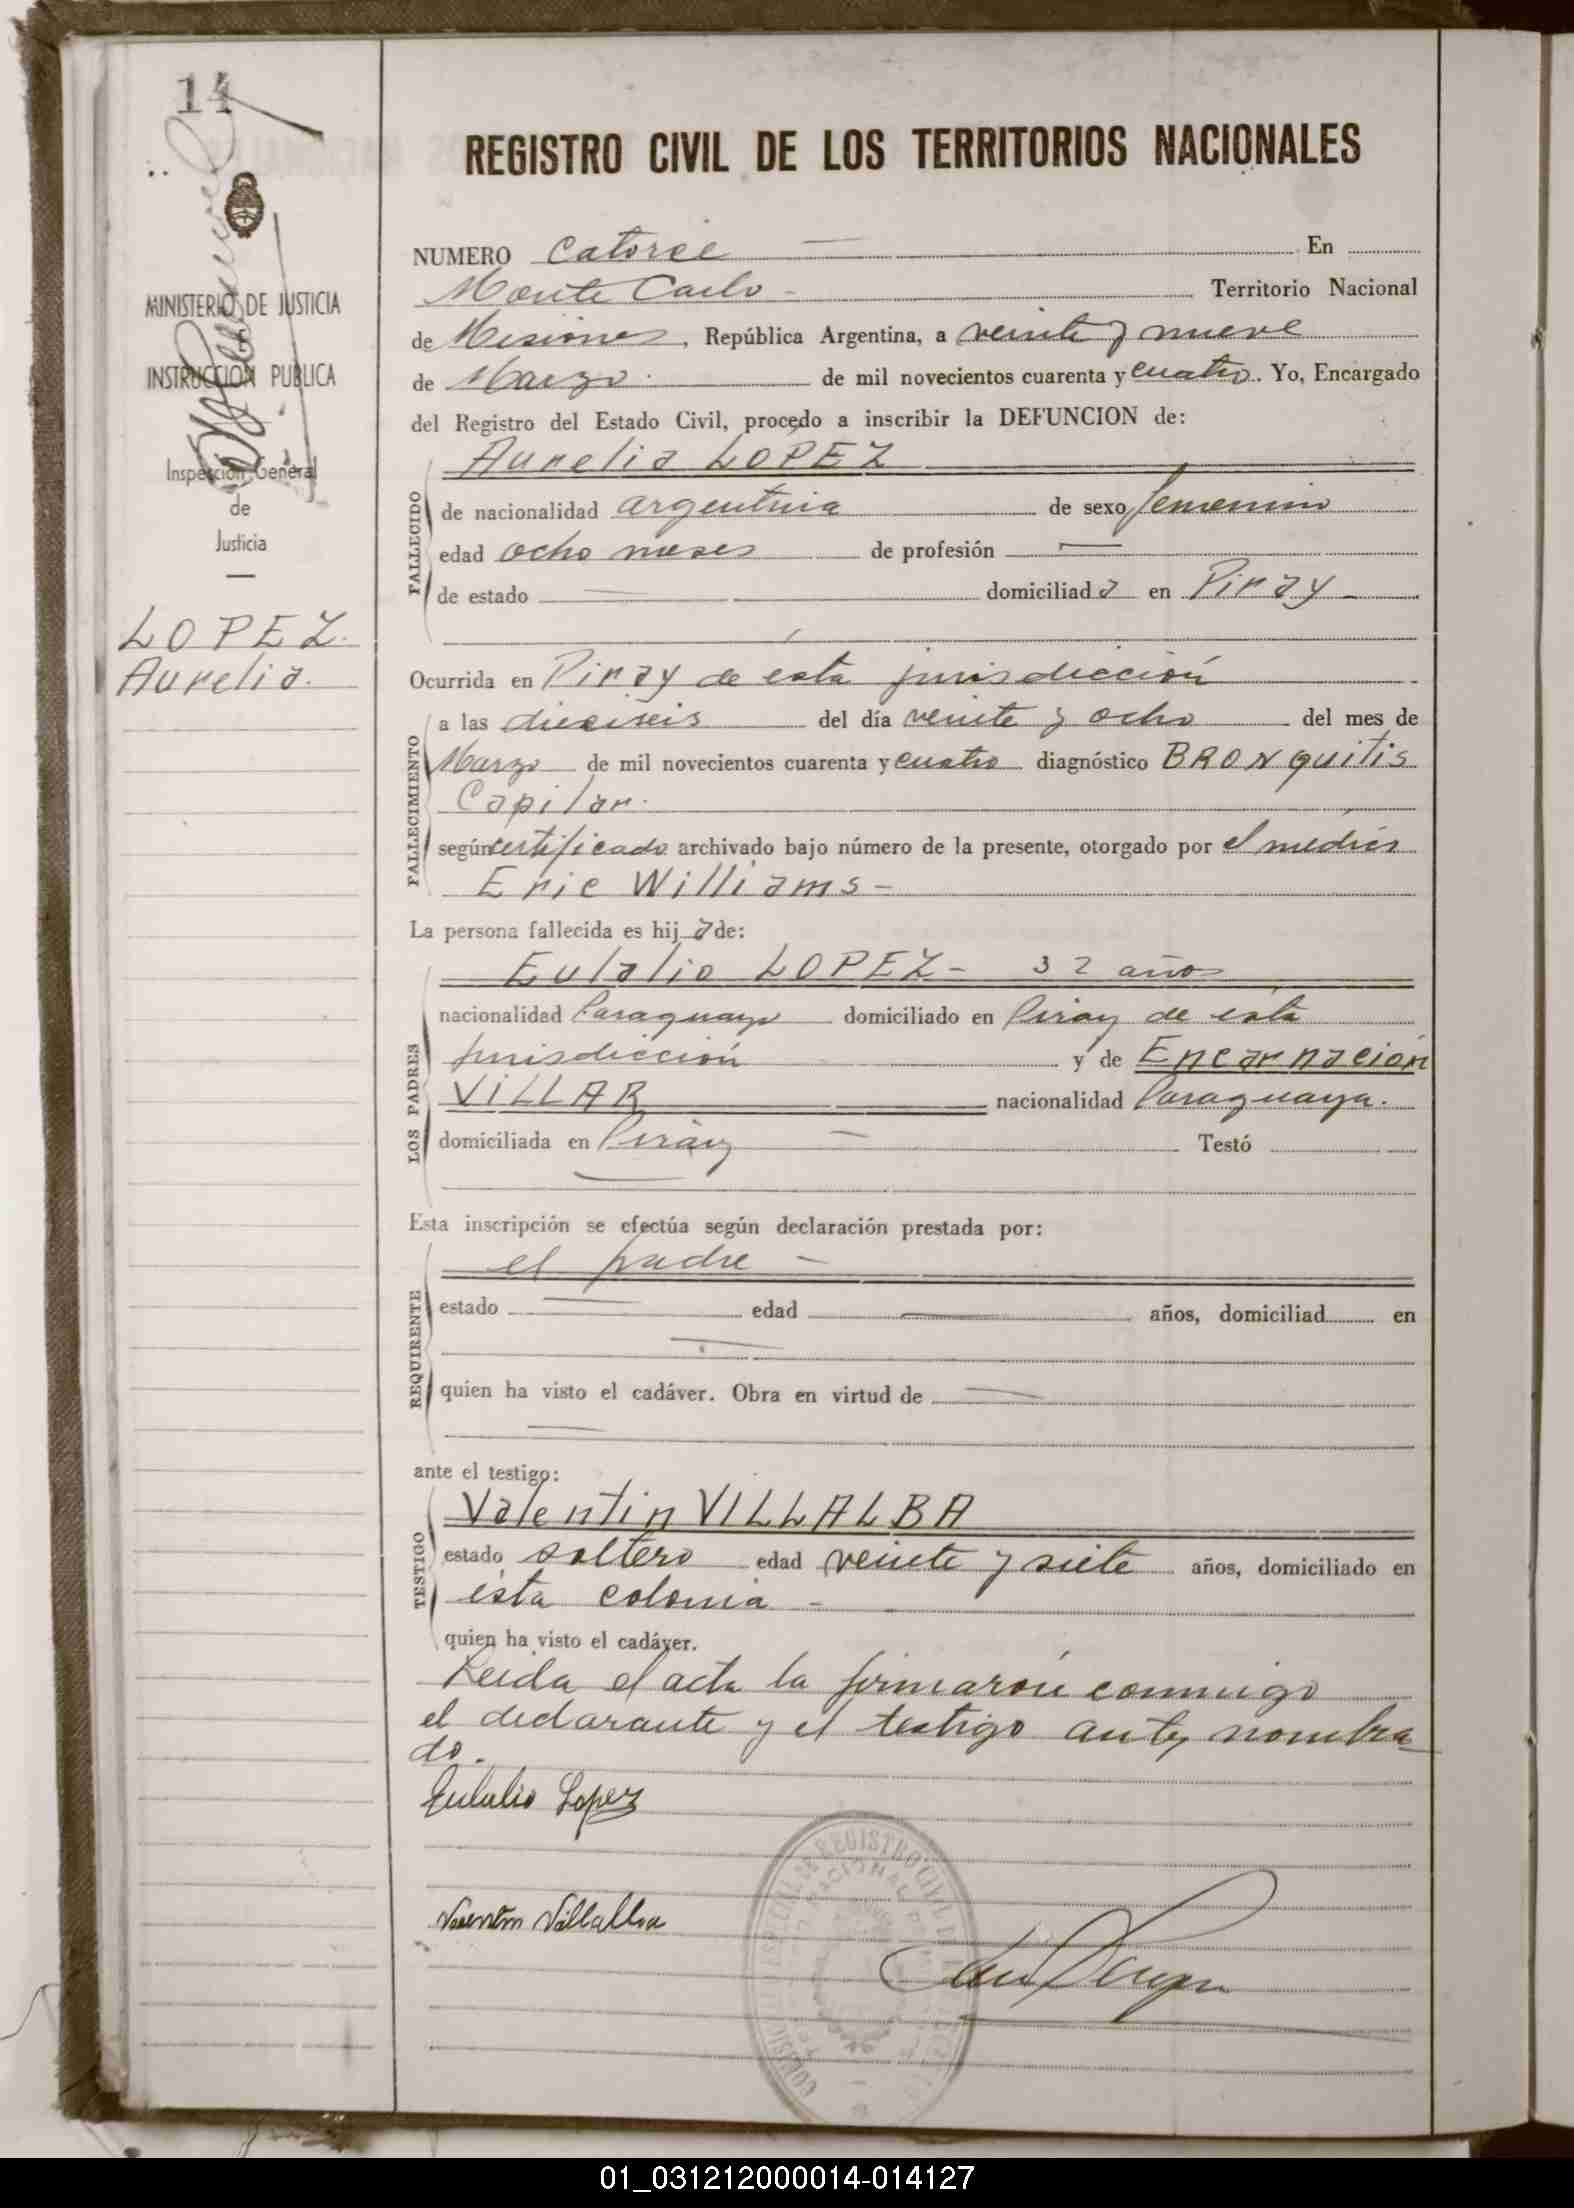 14
MINISTERIO DE JUSTICIA
E
INSTRUCCION PUBLICA
Inspección General
de
Justicia
LOPEZ.
Aurelia.
REGISTRO CIVIL DE LOS TERRITORIOS NACIONALES
NUMERO Catorce En
Monte Carlo Territorio Nacional
de Misiones, República Argentina, a veinte y nueve
de Marzo de mil novecientos cuarenta y cuatro. Yo, Encargado
del Registro del Estado Civil, procedo a inscribir la DEFUNCION de:
Aurelia LOPEZ
FALLECIDO
de nacionalidad argentina de sexo femenino
edad ocho meses de profesión —
de estado — domiciliada en Piray
Ocurrida en Piray de ésta jurisdicción
FALLECIMIENTO
a las dieciseis del día veinte y ocho del mes de
Marzo de mil novecientos cuarenta y cuatro diagnóstico BRONquitis
Capilar.
según certificado archivado bajo número de la presente, otorgado por el médico
Eric Williams -
La persona fallecida es hija de:
LOS PADRES
Eulalio LOPEZ - 32 años
nacionalidad Paraguayo domiciliado en Piray de ésta
jurisdicción y de Encarnación
VILLAR nacionalidad Paraguaya.
domiciliada en Piray — Testó
Esta inscripción se efectúa según declaración prestada por:
REQUIRENTE
el padre -
estado — edad — años, domiciliad en
quien ha visto el cadáver. Obra en virtud de —
ante el testigo:
TESTIGO
Valentin VILLALBA
estado soltero edad veinte y siete años, domiciliado en
ésta colonia -
quien ha visto el cadáver.
Leida el acta la firmarón conmigo
el declarante y el testigo antes nombra
do.
Eulalio Lopez
Valentin Villalba
REGISTRO CIVIL
01_031212000014-014127